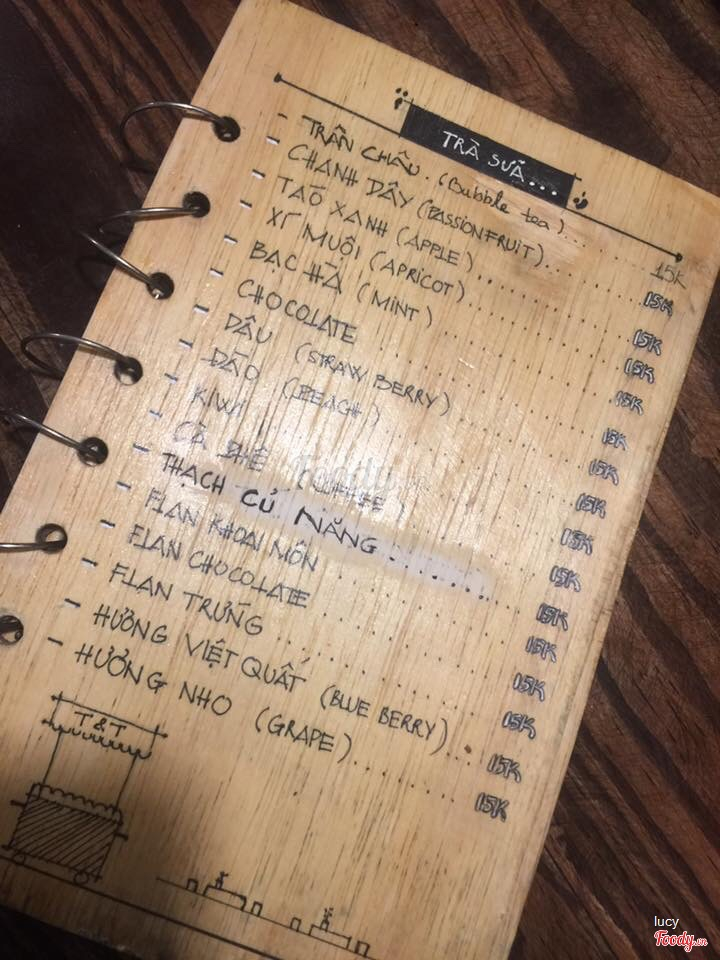 TRÀ SỮA...
- TRÂN CHÂU. (Bubble tea)... 15K
- CHANH DÂY (PASSIONFRUIT)... 15K
- TÁO XANH (APPLE)... 15K
- XÍ MUỘI (APRICOT)... 15K
- BẠC HÀ (MINT)... 15K
- CHOCOLATE... 15K
- DÂU (STRAWBERRY)... 15K
- ĐÀO (PEACH)... 15K
- KIWI... 15K
- CÀ PHÊ (COFFEE)... 15K
- THẠCH CỦ NĂNG... 15K
- FLAN KHOAI MÔN... 15K
- FLAN CHOCOLATE... 15K
- FLAN TRỨNG... 15K
- HƯƠNG VIỆT QUẤT (BLUE BERRY)... 15K
- HƯƠNG NHO (GRAPE)... 15K
T&T
Foody.vn
lucy
Foody.vn